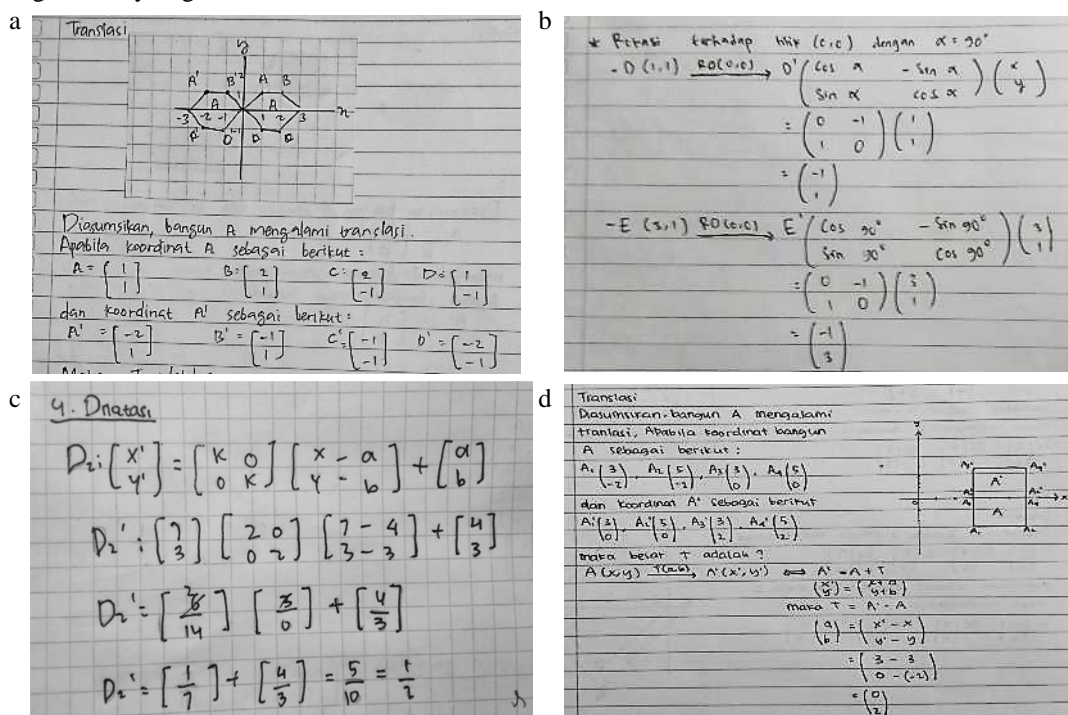 a
Translasi
y
A' B' 2 A B
A 1 A
-3 -2 -1 1 2 3 x
D -1 D
Diasumsikan, bangun A mengalami translasi.
Apabila koordinat A sebagai berikut :
A = [1 1] B: [2 1] C: [2 -1] D: [1 -1]
dan koordinat A' sebagai berikut:
A' = [-2 1] B' = [-1 1] C' = [-1 -1] D' = [-2 -1]
b
* Rotasi terhadap titik (0,0) dengan α = 90°
- D (1,1) RO(0,0) → D' (cos α - sin α sin α cos α) (x y)
= (0 -1 1 0) (1 1)
= (-1 1)
- E (3,1) RO(0,0) → E' (cos 90° - sin 90° sin 90° cos 90°) (3 1)
= (0 -1 1 0) (3 1)
= (-1 3)
c
4. Dilatasi
D₂ : [x' y'] = [K 0 0 K] [x - a y - b] + [a b]
D₂' : [7 3] [2 0 0 2] [7 - 4 3 - 3] + [4 3]
D₂' = [14] [3 0] + [4 3]
D₂' = [1 7] + [4 3] = 5/10 = 1/2
d
Translasi
Diasumsikan bangun A mengalami
tranlasi, Apabila koordinat bangun
A sebagai berikut :
A₁ (3 -2), A₂ (5 -2), A₃ (3 0), A₄ (5 0)
dan koordinat A' sebagai berikut
A₁' (3 0), A₂' (5 0), A₃' (3 2), A₄' (5 2)
maka besar T adalah ?
A(x,y) T(a,b) → A'(x',y') ⟺ A' = A + T
(x' y') = (x+a y+b)
maka T = A' - A
(a b) = (x' - x y' - y)
= (3 - 3 0 - (-2))
= (0 2)
y
A₃' A₄'
A'
0 x
A
A₁ A₂